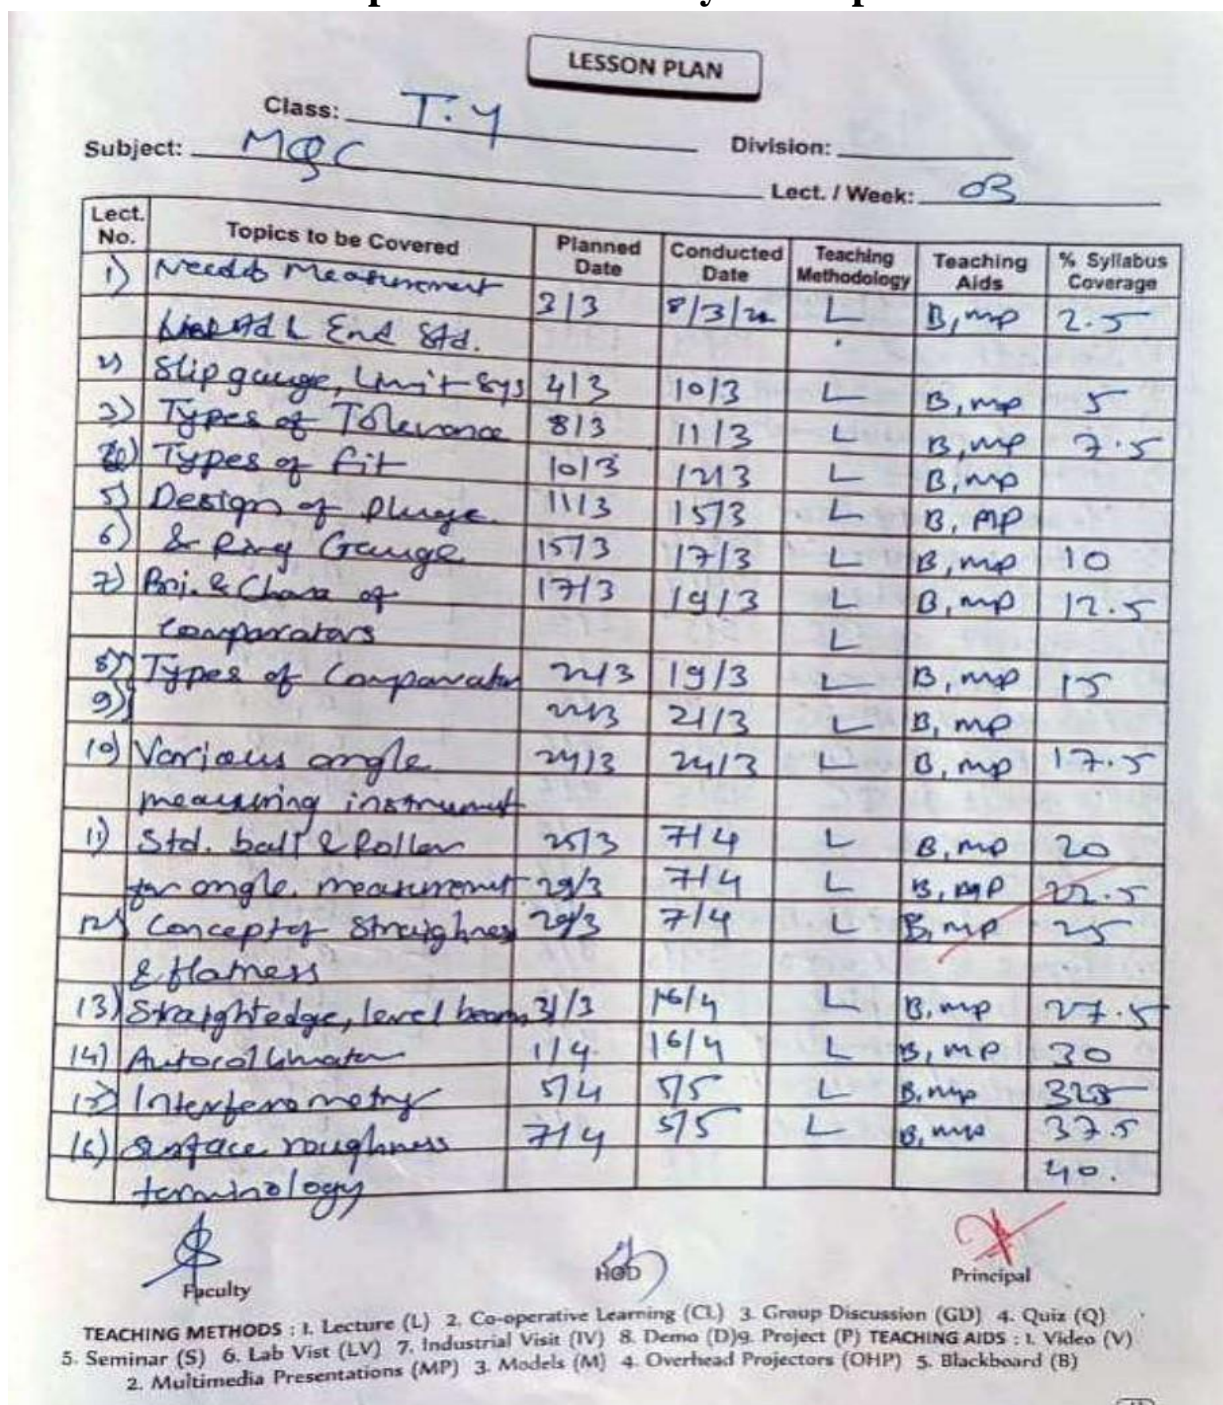 LESSON PLAN
Class: T.Y
Subject: MQC Division:
Lect. / Week: 03
Lect. No. Topics to be Covered Planned Date Conducted Date Teaching Methodology Teaching Aids % Syllabus Coverage
1) Need Measurement 3/3 8/3/21 L B, MP 2.5
& End Std.
2) Slip gauge, Limit Sys 4/3 10/3 L B, MP 5
3) Types of Tolerance 8/3 11/3 L B, MP 7.5
Types of fit 10/3 12/3 L B, MP
5) Design of Pluge 11/3 15/3 L B, MP
6) & Ring Gauge 15/3 17/3 L B, MP 10
7) & Chara of 17/3 19/3 L B, MP 12.5
Comparators L
8) Types of Comparator 22/3 19/3 L B, MP 15
9) 22/3 21/3 L B, MP
10) Various angle 24/3 24/3 L B, MP 17.5
measuring instrument
11) Std. ball & Roller 25/3 7/4 L B, MP 20
for angle measurement 29/3 7/4 L B, MP 22.5
12) Concept of Straighness 29/3 7/4 L B, MP 25
& flatness
13) Straightedge, level beam, 31/3 16/4 L B, MP 27.5
14) Autocollimator 1/4 16/4 L B, MP 30
15) Interferometry 5/4 5/5 L B, MP
16) Surface roughness 7/4 5/5 L B, MP 37.5
terminology 40.
Faculty HOD Principal
TEACHING METHODS : 1. Lecture (L) 2. Co-operative Learning (CL) 3. Group Discussion (GD) 4. Quiz (Q)
5. Seminar (S) 6. Lab Vist (LV) 7. Industrial Visit (IV) 8. Demo (D)9. Project (P) TEACHING AIDS : 1. Video (V)
2. Multimedia Presentations (MP) 3. Models (M) 4. Overhead Projectors (OHP) 5. Blackboard (B)